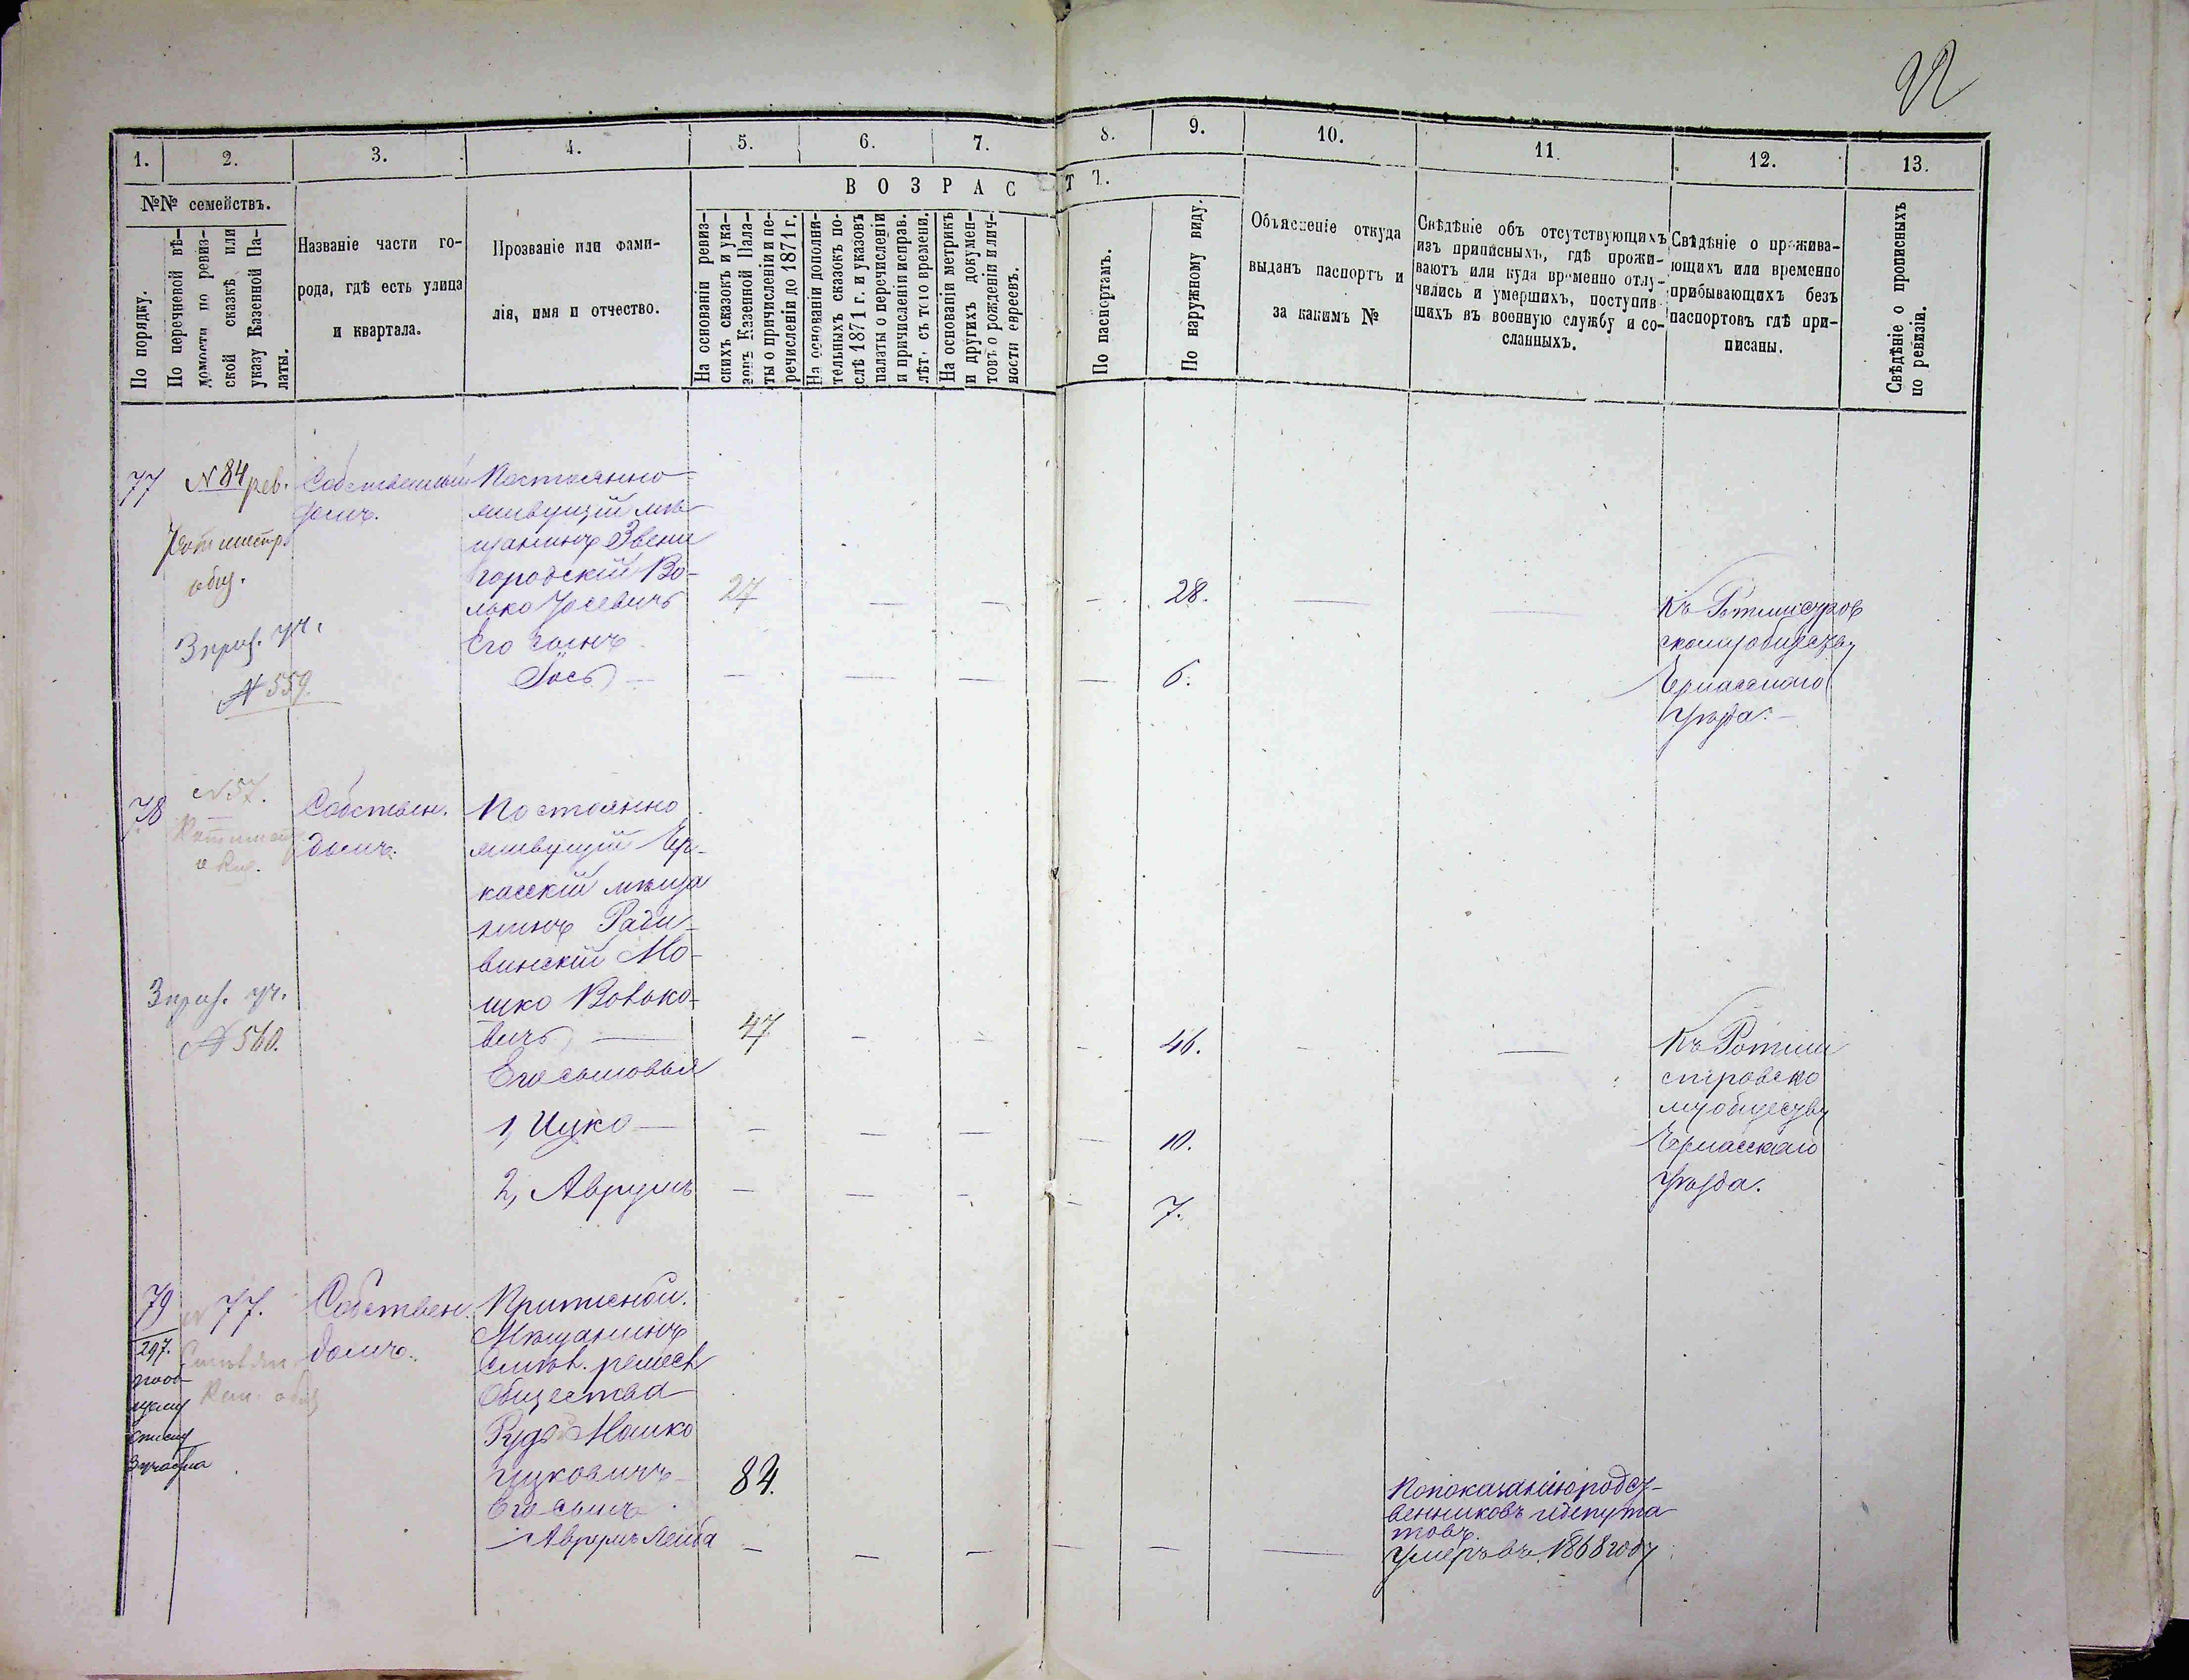 22
1.
2.
3.
4.
5.
6.
7.
8.
9.
10.
11.
12.
13.
№№ семействъ.
ВОЗРАСТ
По порядку.
По перечневой вѣ-
домости по ревиз-
ской сказкѣ или
указу Казенной Па-
латы.
Названіе части го-
рода, гдѣ есть улица
и квартала.
Прозваніе или фами-
лія, имя и отчество.
На основаніи ревиз-
скихъ сказокъ и ука-
зовъ Казенной Пала-
ты о причисленіи и пе-
речисленіи до 1871 г.
На основаніи дополни-
тельныхъ сказокъ по-
слѣ 1871 г. и указовъ
палаты о перечисленіи
и причисленіи исправ.
лѣт. съ того времени.
На основаніи метрикъ
и других документ-
товъ о рожденіи и лич-
ности евреевъ.
По паспортамъ.
По наружному виду.
Объясненіе откуда
выданъ паспортъ и
за какимъ №
Свѣдѣніе объ отсутствующихъ
изъ приписныхъ, гдѣ прожи-
ваютъ или куда временно отлу-
чились и умершихъ, поступив-
шихъ въ военную службу и со-
сланныхъ.
Свѣдѣніе о прожива-
ющихъ или временно
прибывающихъ безъ
паспортовъ гдѣ при-
писаны.
Свѣдѣніе о прописныхъ
по ревизіи.
77
N 84 рев.
Ротмистр.
общ.
3 приз. уч.
№ 559.
Собственный
домъ.
Постоянно
живущій мѣ
щанинъ Звени
городскій Во-
лько Іосевичъ
27
28.
Его сынъ
Іось
6.
Къ Ротмистров
скому обществу
Черкасскаго
уѣзда.
78
N 57.
Ротмист
общ.
3 приз. уч.
№ 560.
Собствен.
домъ.
Постоянно
живущій Чер-
касскій мѣща
нинъ Ради-
винскій Мо-
шко Вовко-
вичъ
47
46.
Его сыновья
1, Ицко
10.
2, Аврумъ
7.
Къ Ротми
стровско
му обществу
Черкасскаго
уѣзда.
79
297.
по об-
щему
списку
3 участка
N 77.
Рем. общ
Собствен.
домъ.
Приписной
Мѣщанинъ
Смѣл. ремесл
Общества
Рудь Мошко
Ицковичъ
84.
Его сынъ
Аврумъ Лейба
По показанію родст-
венниковъ и депута
товъ.
Умеръ въ 1868 году